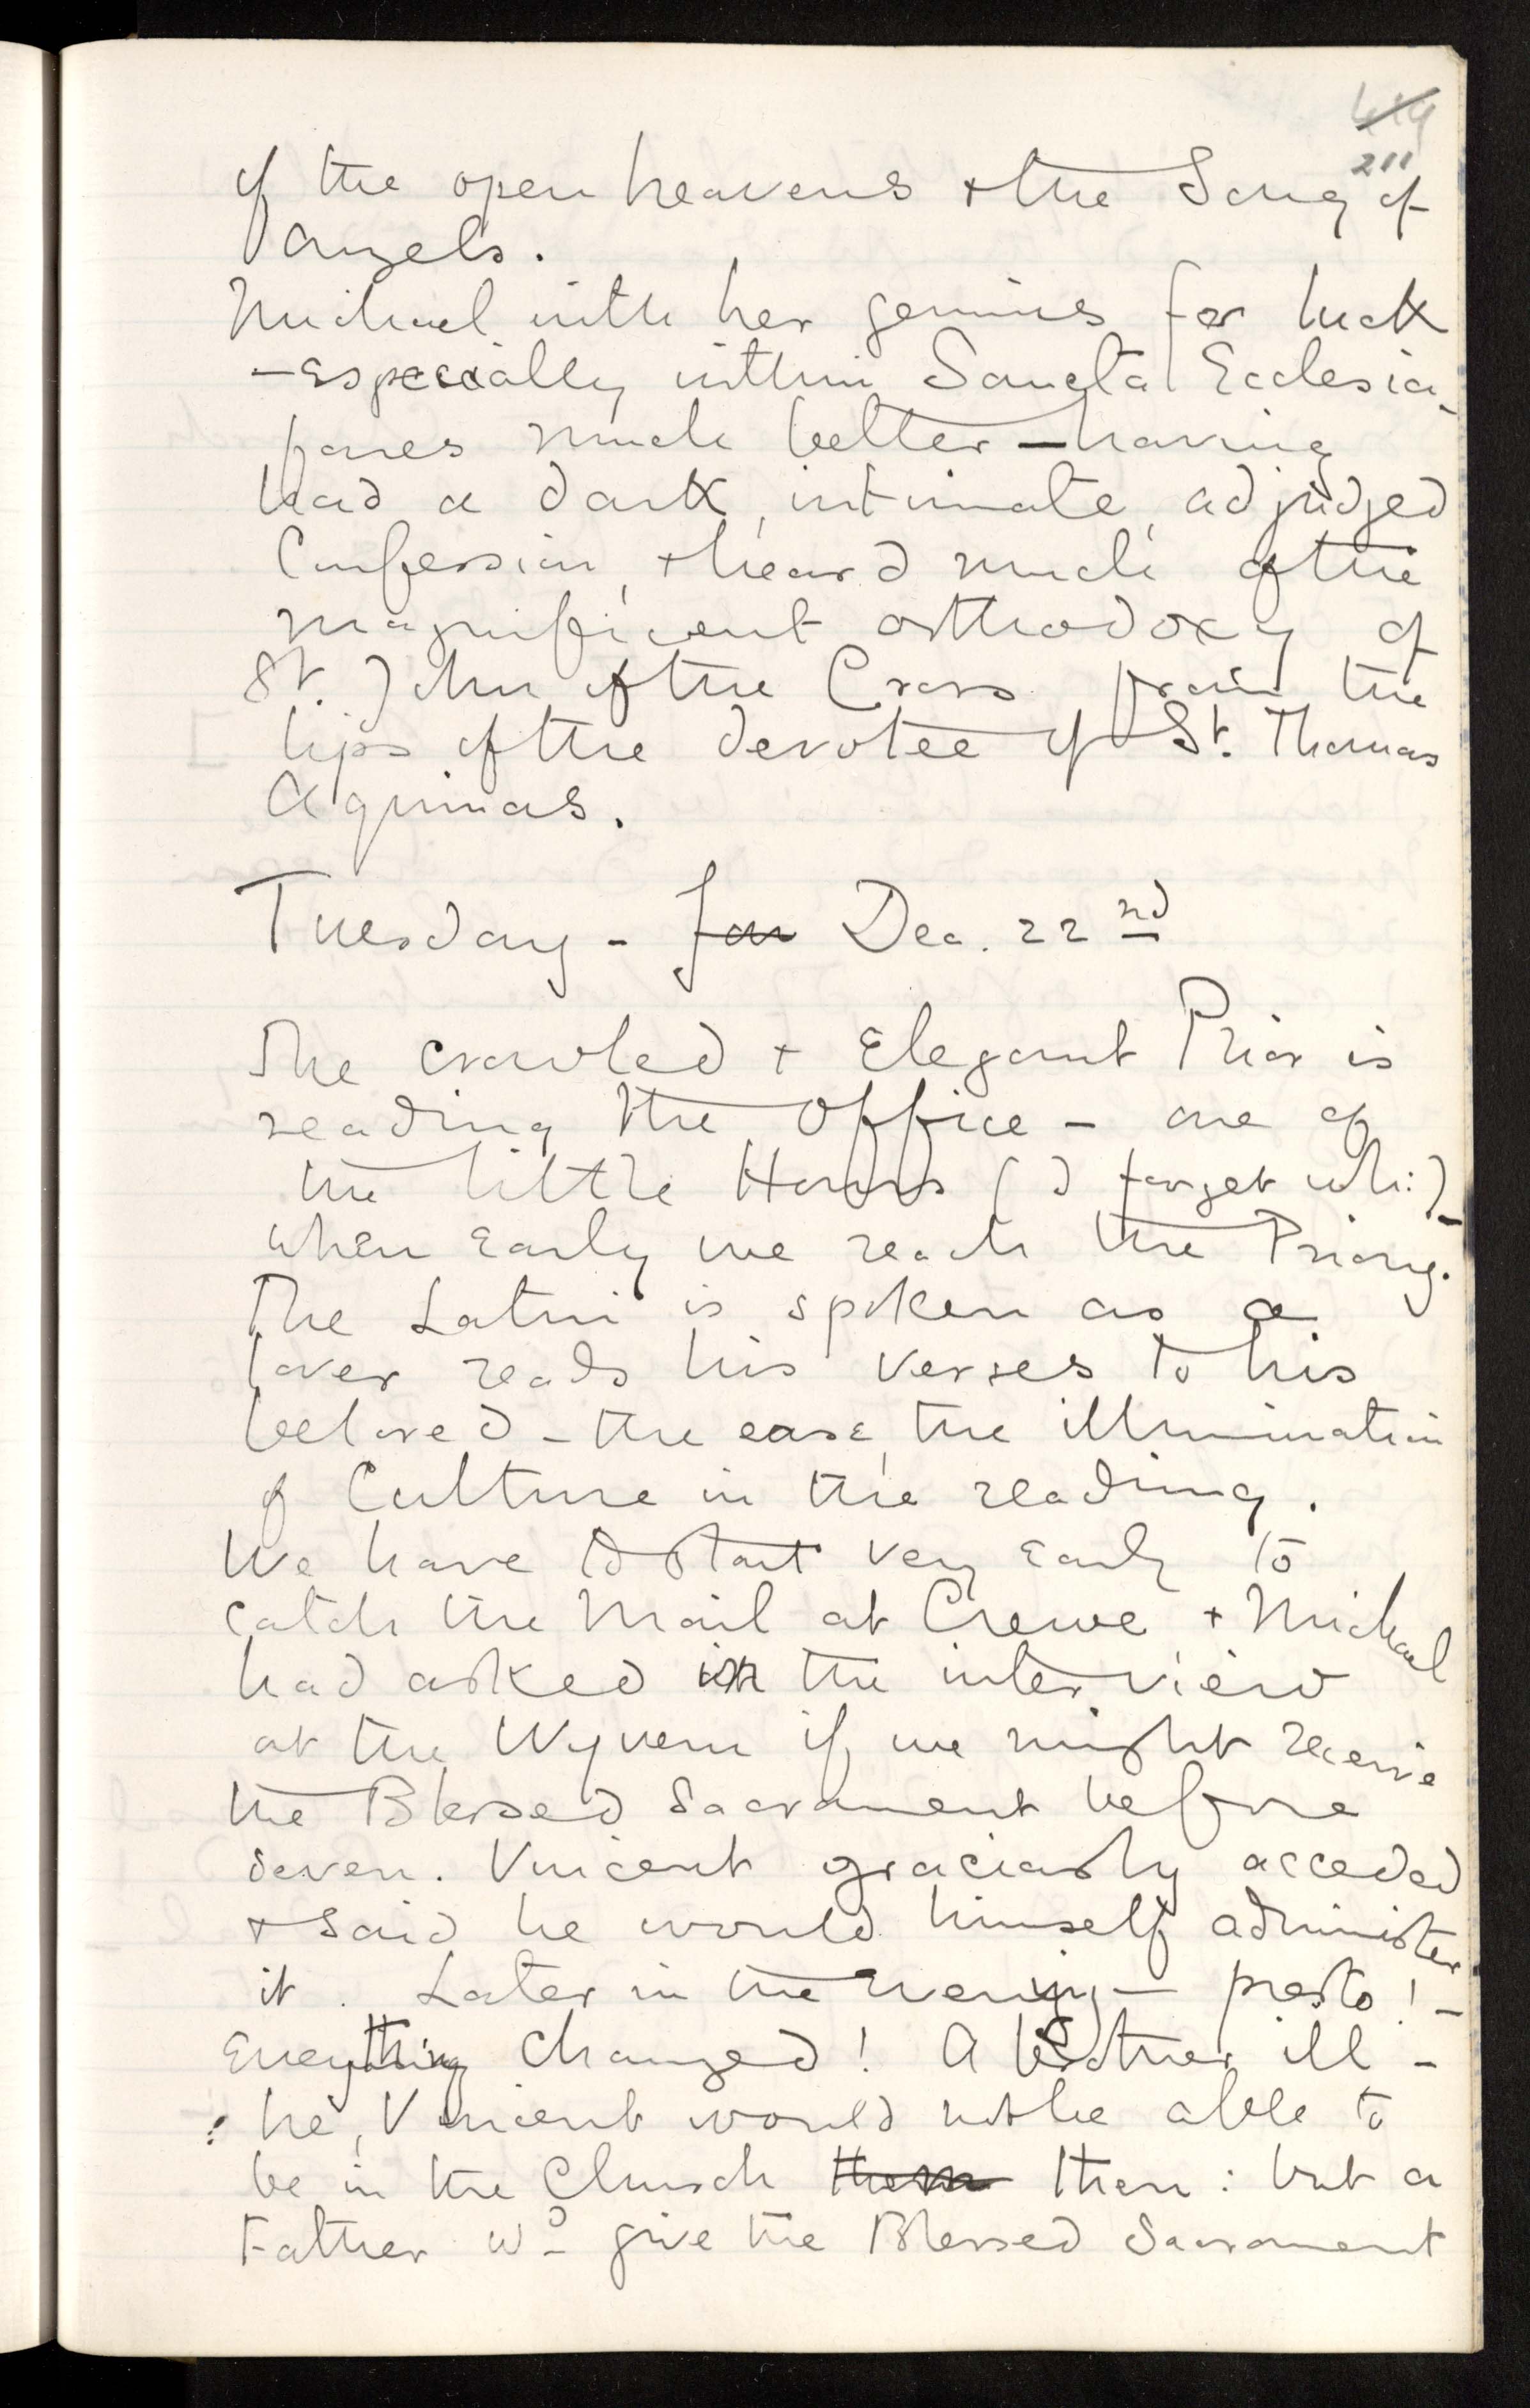 211
of the open heavens + the Song of
angels.
Michael with her genius for luck
- especially within Sancta Ecclesia -
fares much better — having
had a dark, intimate, adjudged
Confession, + heard much of the
magnificent orthodoxy of
St. John of the Cross from the
lips of the devotee of St. Thomas
Aquinas.
Tuesday - Jan Dec. 22nd
The cowled + Elegant Prior is
reading the Office - one of
the little Hours (I forget wh:) -
when Early we reach the Priory.
The Latin is spoken as a
lover reads his verses to his
beloved - the ease, the illumination
of Culture in the reading.
We have to start very Early to
catch the Mail at Crewe + Michael
had asked in the interview
at the Wyvern if we might receive
the Blessed Sacrament before
seven. Vincent graciously acceded
+ said he would himself administer
it. Later in the Evening — presto! -
Everything Changed! A brother ill -
: he, Vincent would not be able to
be in the Church them then: but a
Father wd give the Blessed Sacrament